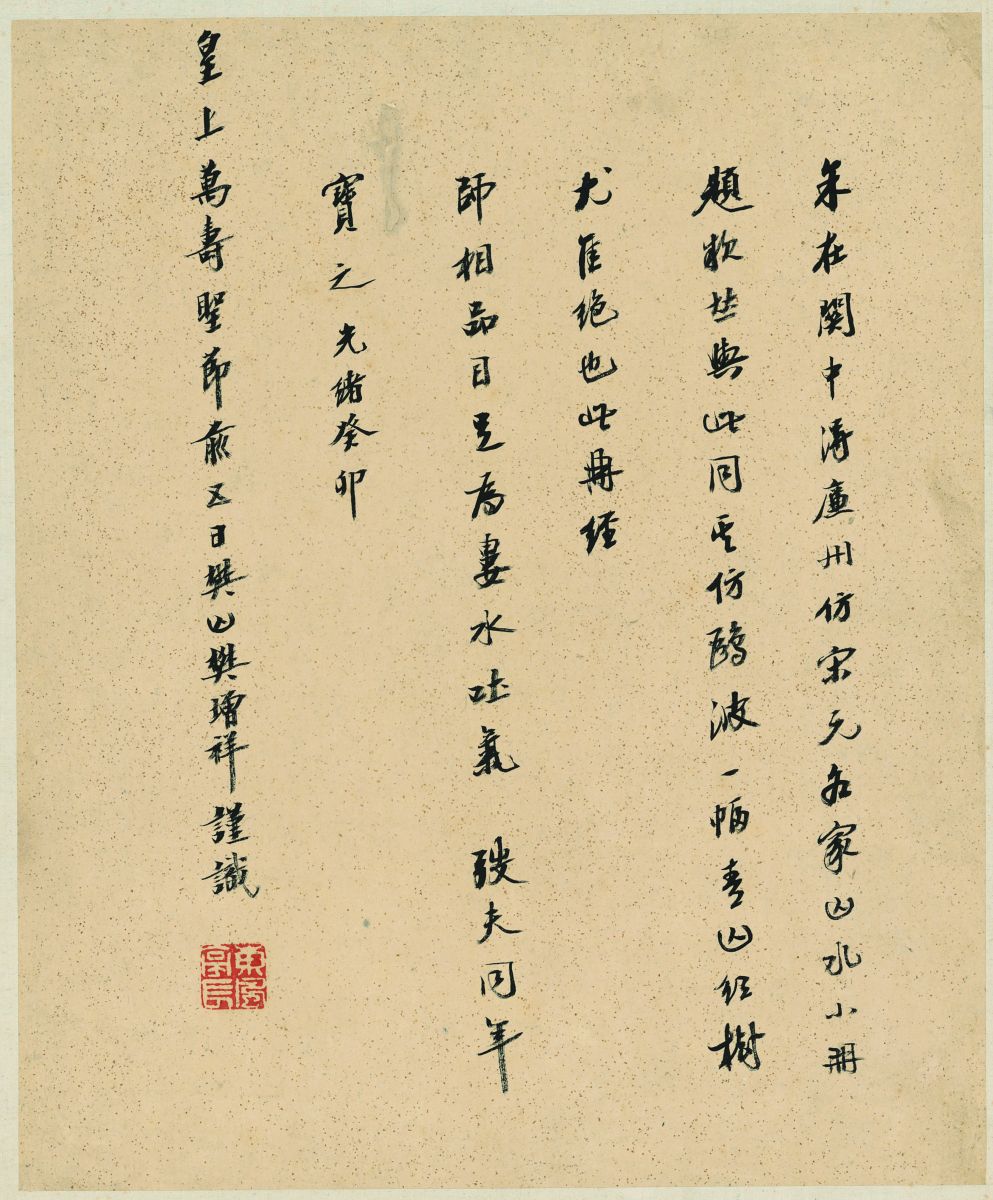 余在關中得廉州仿宋元名家山水小冊
題款並與此同其仿鷗波一幅青山紅樹
尤佳絕也此冊經
師相品目足為婁水吐氣 弢夫同年
寶之光緒癸卯
皇上萬壽聖節前五日樊山樊增祥謹識